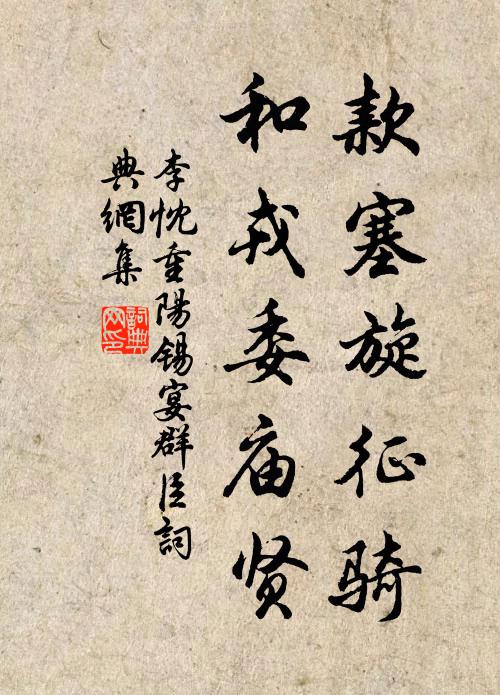 款塞旋征骑
和戎委庙贤
李忱重陽锡宴群臣詞
典網集
詞典网印